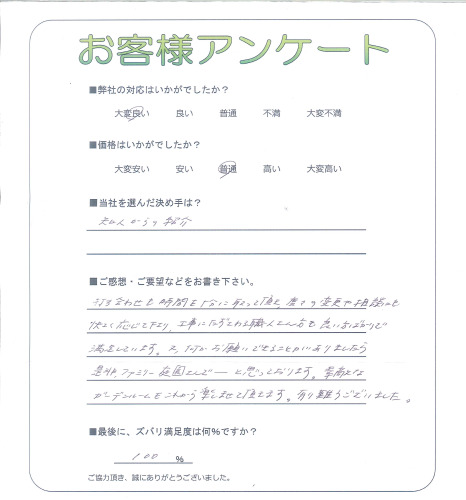 お客様アンケート
■弊社の対応はいかがでしたか？
大変良い 良い 普通 不満 大変不満
■価格はいかがでしたか？
大変安い 安い 普通 高い 大変高い
■当社を選んだ決め手は？
知人からの紹介
■ご感想・ご要望などをお書き下さい。
打ち合わせも時間を十分に取って頂き、度々の変更や相談にも
快く応じて下さり、工事にたずさわる職人さん方も良い方ばかりで
満足しています。又、何かお願いできることがありましたら
是非、ファミリー庭園さんで――と思っております。素敵な
ガーデンルームをこれから楽しませて頂きます。有り難うございました。
■最後に、ズバリ満足度は何%ですか？
100 %
ご協力頂き、誠にありがとうございました。